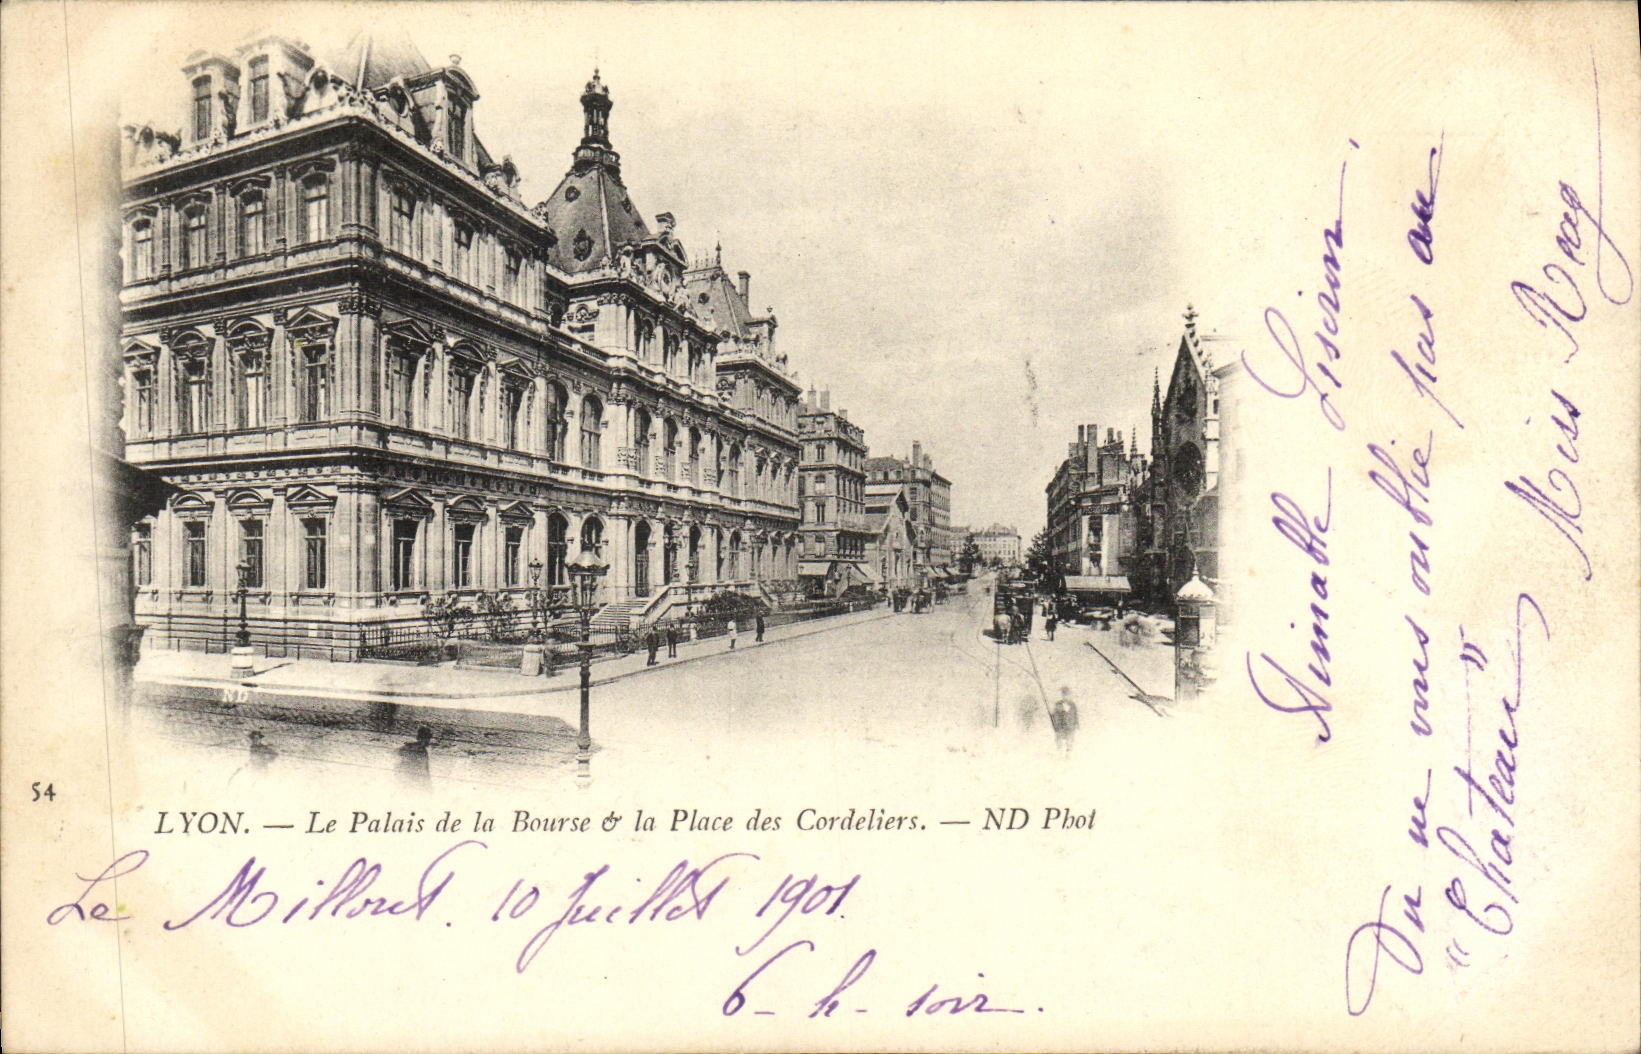 54
LYON. — Le Palais de la Bourse & la Place des Cordeliers. — ND Phot
ND
Le Millout. 10 Juillet 1901.
6 - h - soir.
Aimable
On ne vous oublie pas au
"Château"
Miss